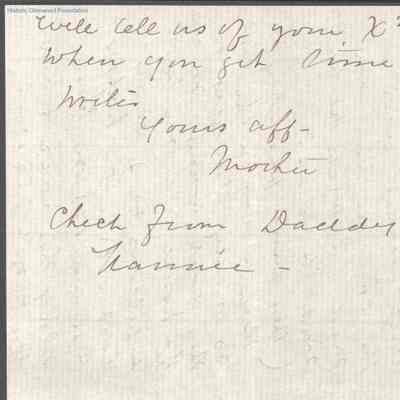 Historic Deerwood Foundation
well tell us of your X
when you get time
write
Yours aff -
Mother
Check from Daddy
Nannie -